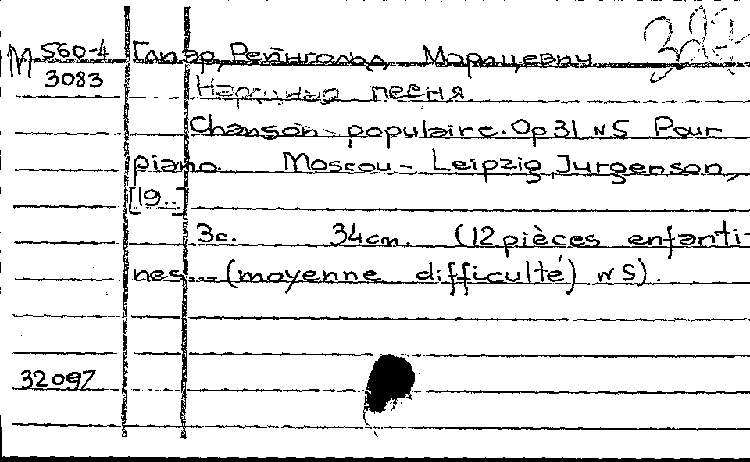 М 560-4 Глиэр, Рейнгольд Морицевич
3083 Народная песня
Chanson populaire. Op 31 N5 Pour
piano. Moscou - Leipzig, Jurgenson,
[19..]
3с. 34cm. (12 pièces enfanti-
nes... (moyenne difficulté) N5).
32097